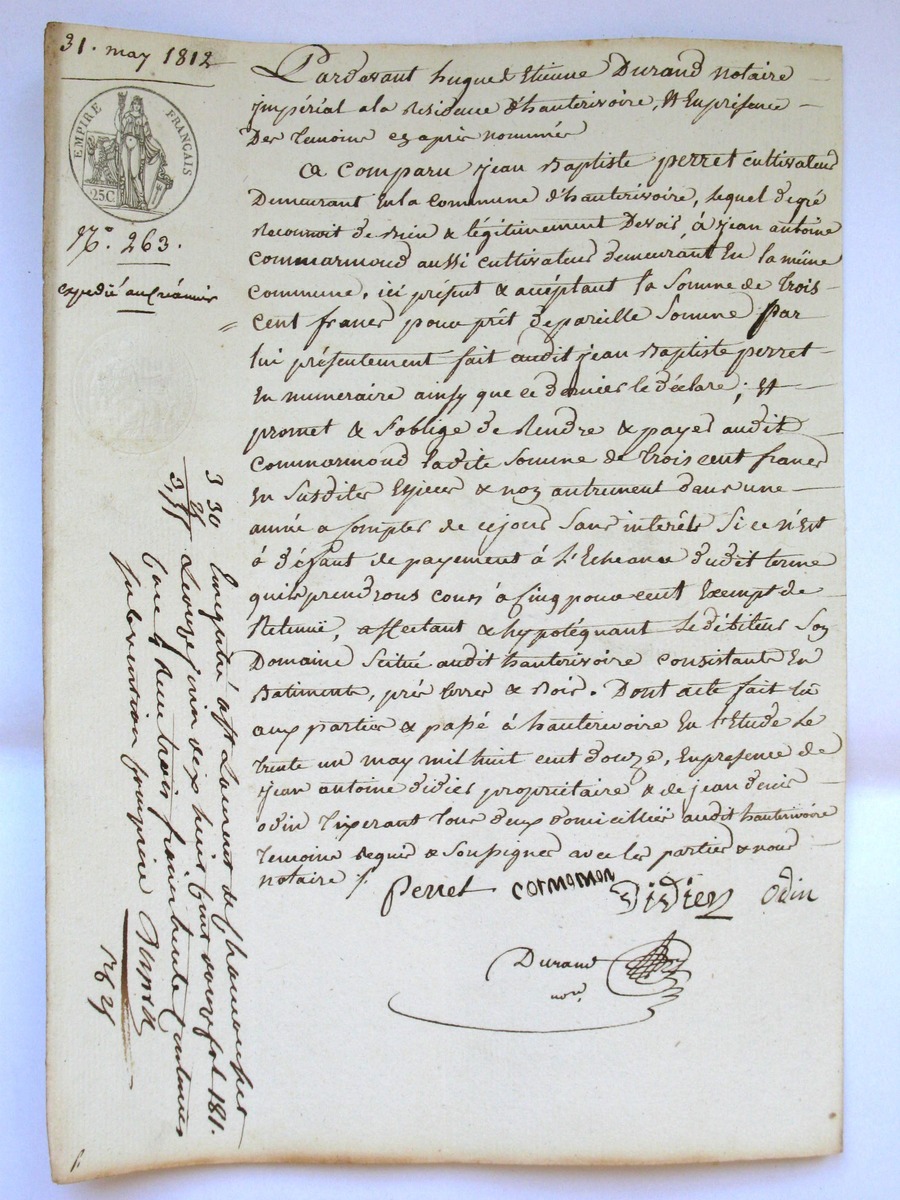 31. may 1812
EMPIRE FRANÇAIS
25C
N.° 263.
expedié au Créancier
Pardevant hugues Etienne Durand notaire
jmpérial a la Residence d'hauterivoire, Et En présence
Des temoins cy après nommés
A Comparu jean Baptiste perret cultivateur
Demeurant En la commune d'hauterivoire, lequel de gré
Reconnoit de bien & légitimement Devoir, à jean antoine
commarmond aussi cultivateur demeurant En la même
commune, ici présent & acéptant la Somme de trois
cent francs pour prêt de pareille Somme par
lui présentement fait audit jean Baptiste perret
En numeraire ainsy que ce dernier le déclare; Et
promet & S'oblige de Rendre & payer audit
commarmond ladite Somme de trois cent francs
En Susdites Espèces & non autrement dans une
année a Compter de ce jour Sans interêts Si ce n'Est
à défaut de payement à L'Echeance dudit terme
qu'ils prendrons cours à Cinq pour cent Exempt de
Retenüe, affectant & hypotéquant Le débiteur Son
Domaine Scitué audit hauterivoire consistants En
Batiments, prés terres & Bois. Dont acte fait lû
aux parties & passé à hauterivoire En l'Etude Le
trente un may mil huit cent douze, En presence de
jean antoine didier propriétaire & de jean denis
odin tixerant tous deux domiciliés audit hauterivoire
temoins Requis & Soussignés avec les parties & nous
notaire /.
Perret cormomon Didier Odin
Durand
not.re
3 30
Enregistré à St Laurent de Chamousset
Le onze juin dix huit cent douze fol 181.
Case 4 Reçu trois francs trente Centimes
subvention comprise